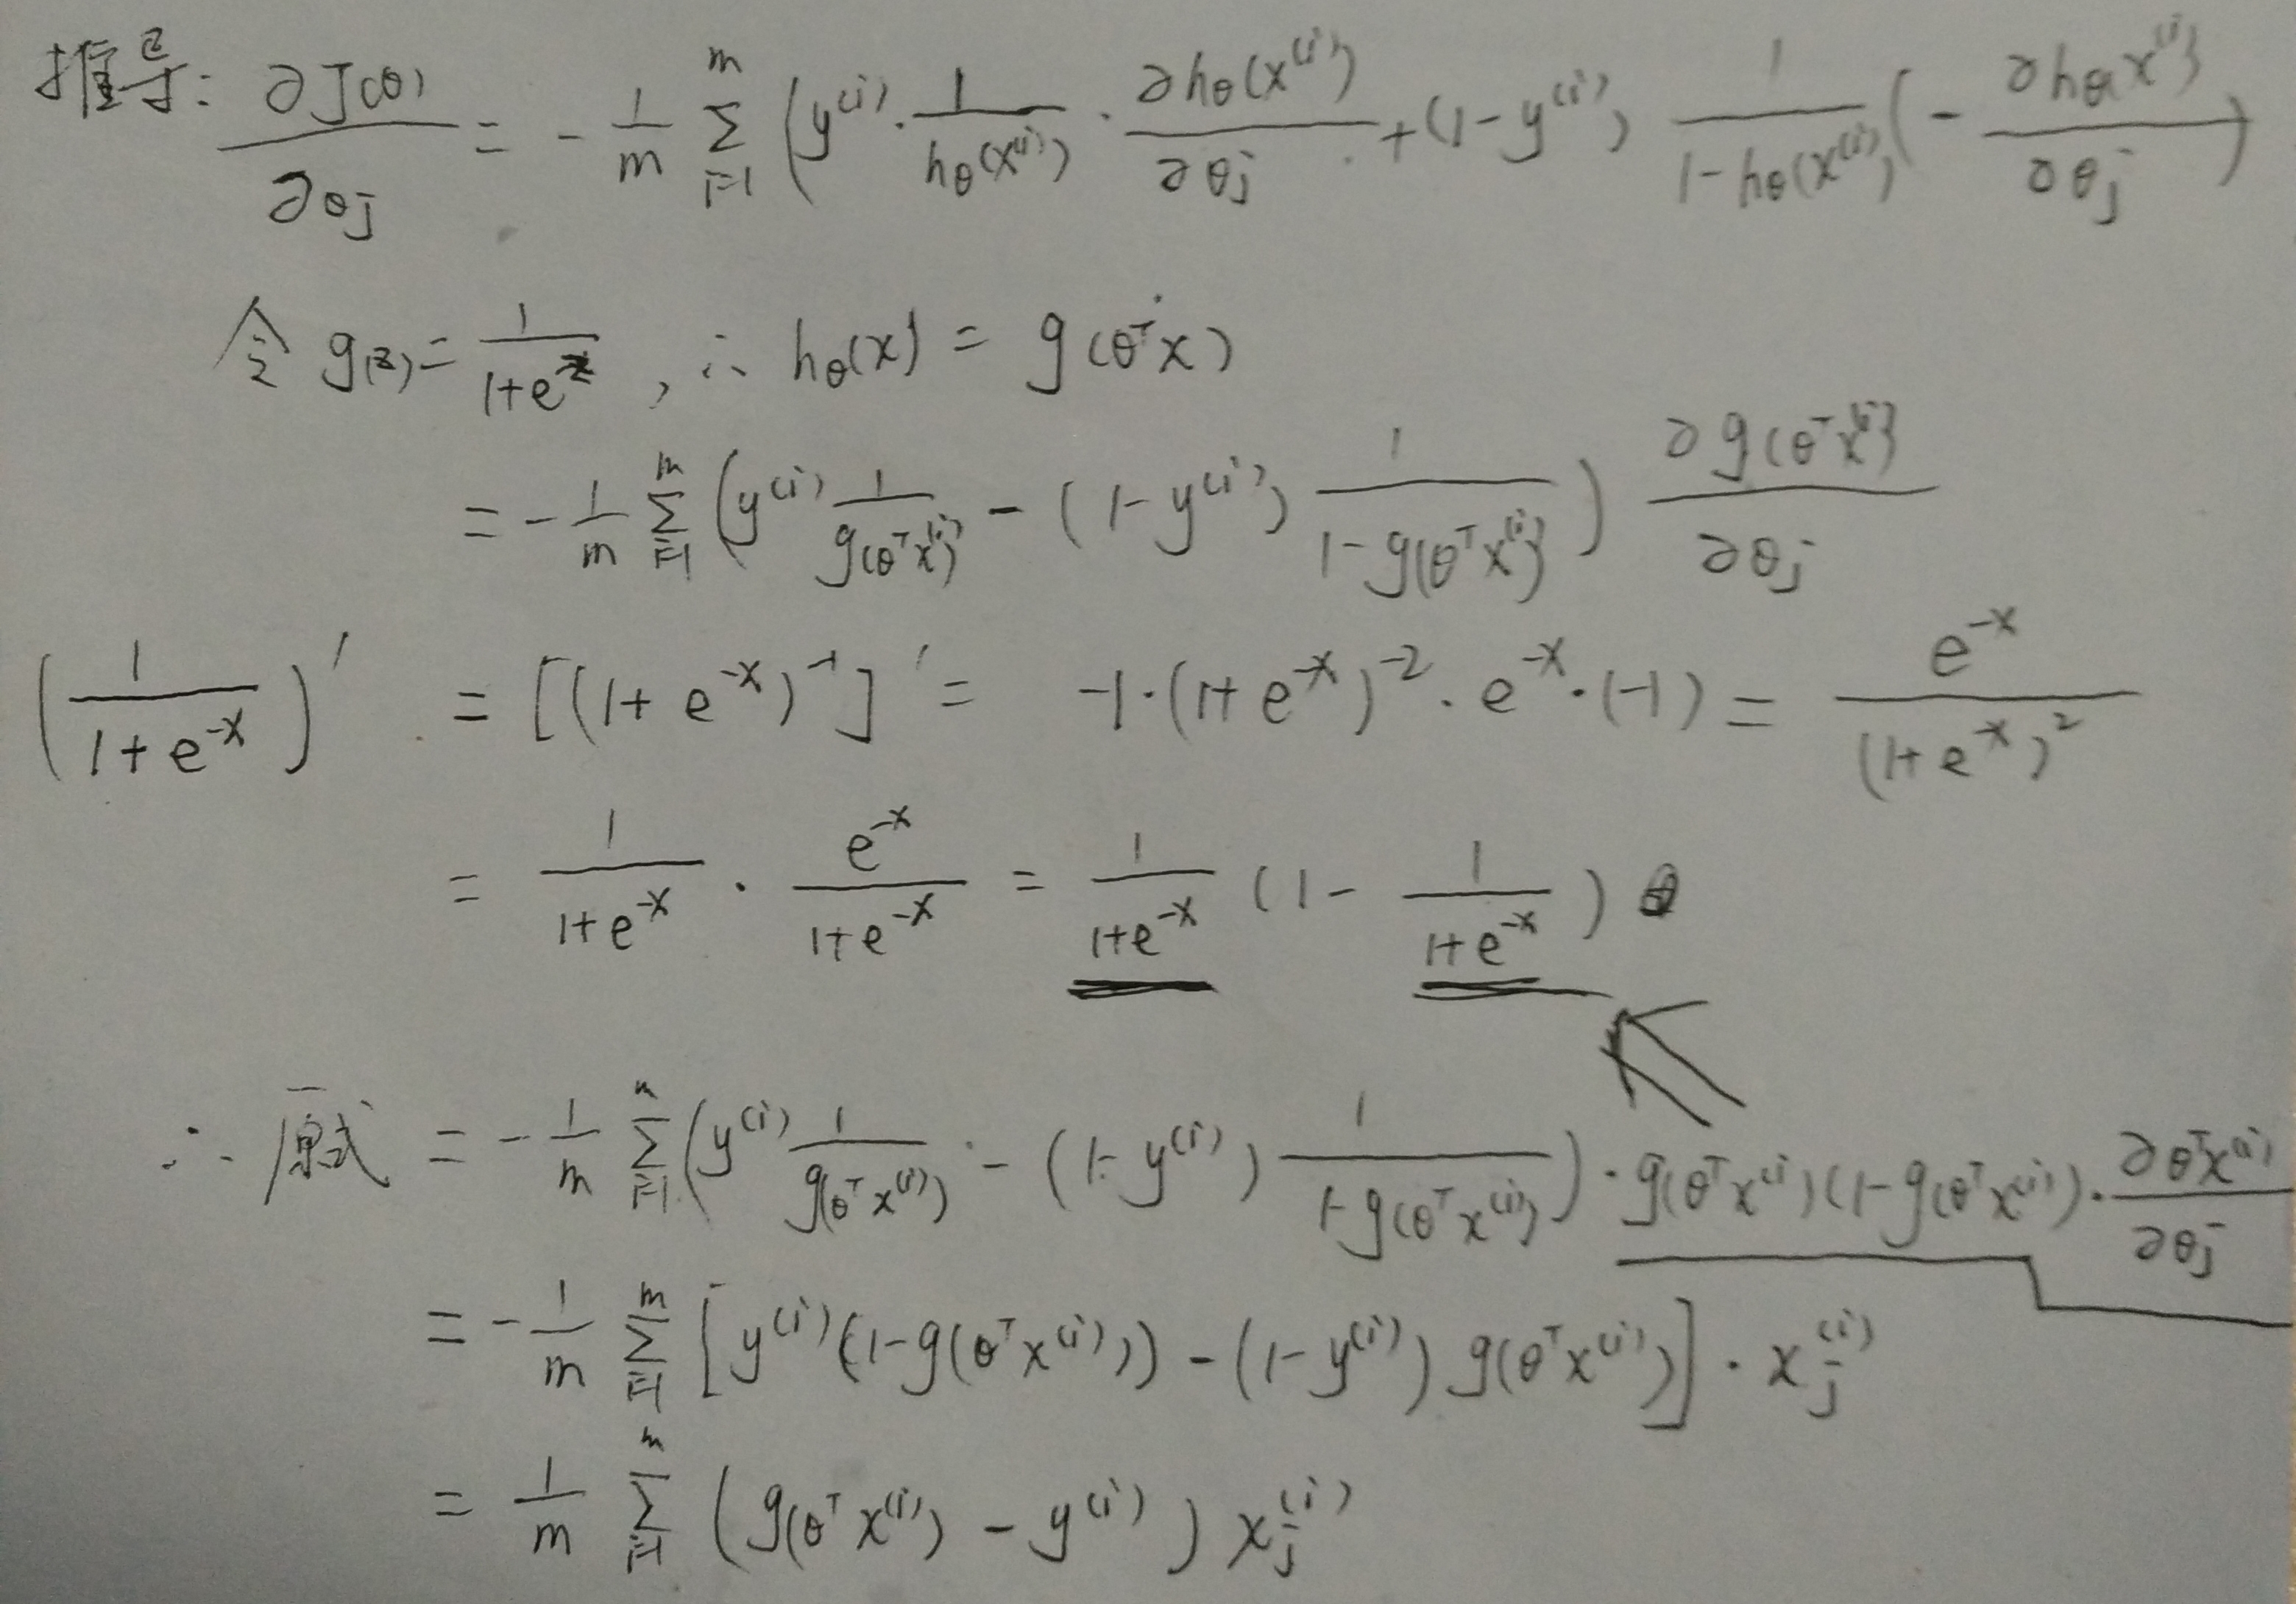 推导: ∂J(θ)/∂θj = - 1/m ∑_{i=1}^{m} (y^(i) · 1/hθ(x^(i)) · ∂hθ(x^(i))/∂θj + (1-y^(i)) 1/(1-hθ(x^(i))) (- ∂hθ(x^(i))/∂θj)
令 g(z) = 1/(1+e^-z) , ∴ hθ(x) = g(θ^T x)
= - 1/m ∑_{i=1}^{m} (y^(i) 1/g(θ^T x^(i)) - (1-y^(i)) 1/(1-g(θ^T x^(i)))) ∂g(θ^T x^(i))/∂θj
(1/(1+e^-x))' = [(1+e^-x)^-1]' = -1·(1+e^-x)^-2 · e^-x · (-1) = e^-x/(1+e^-x)^2
= 1/(1+e^-x) · e^-x/(1+e^-x) = 1/(1+e^-x) (1- 1/(1+e^-x))
∴ 原式 = - 1/m ∑_{i=1}^{m} (y^(i) 1/g(θ^T x^(i)) - (1-y^(i)) 1/(1-g(θ^T x^(i)))) · g(θ^T x^(i))(1-g(θ^T x^(i))) · ∂θ^T x^(i)/∂θj
= - 1/m ∑_{i=1}^{m} [y^(i)(1-g(θ^T x^(i))) - (1-y^(i)) g(θ^T x^(i))] · x_j^(i)
= 1/m ∑_{i=1}^{m} (g(θ^T x^(i)) - y^(i)) x_j^(i)